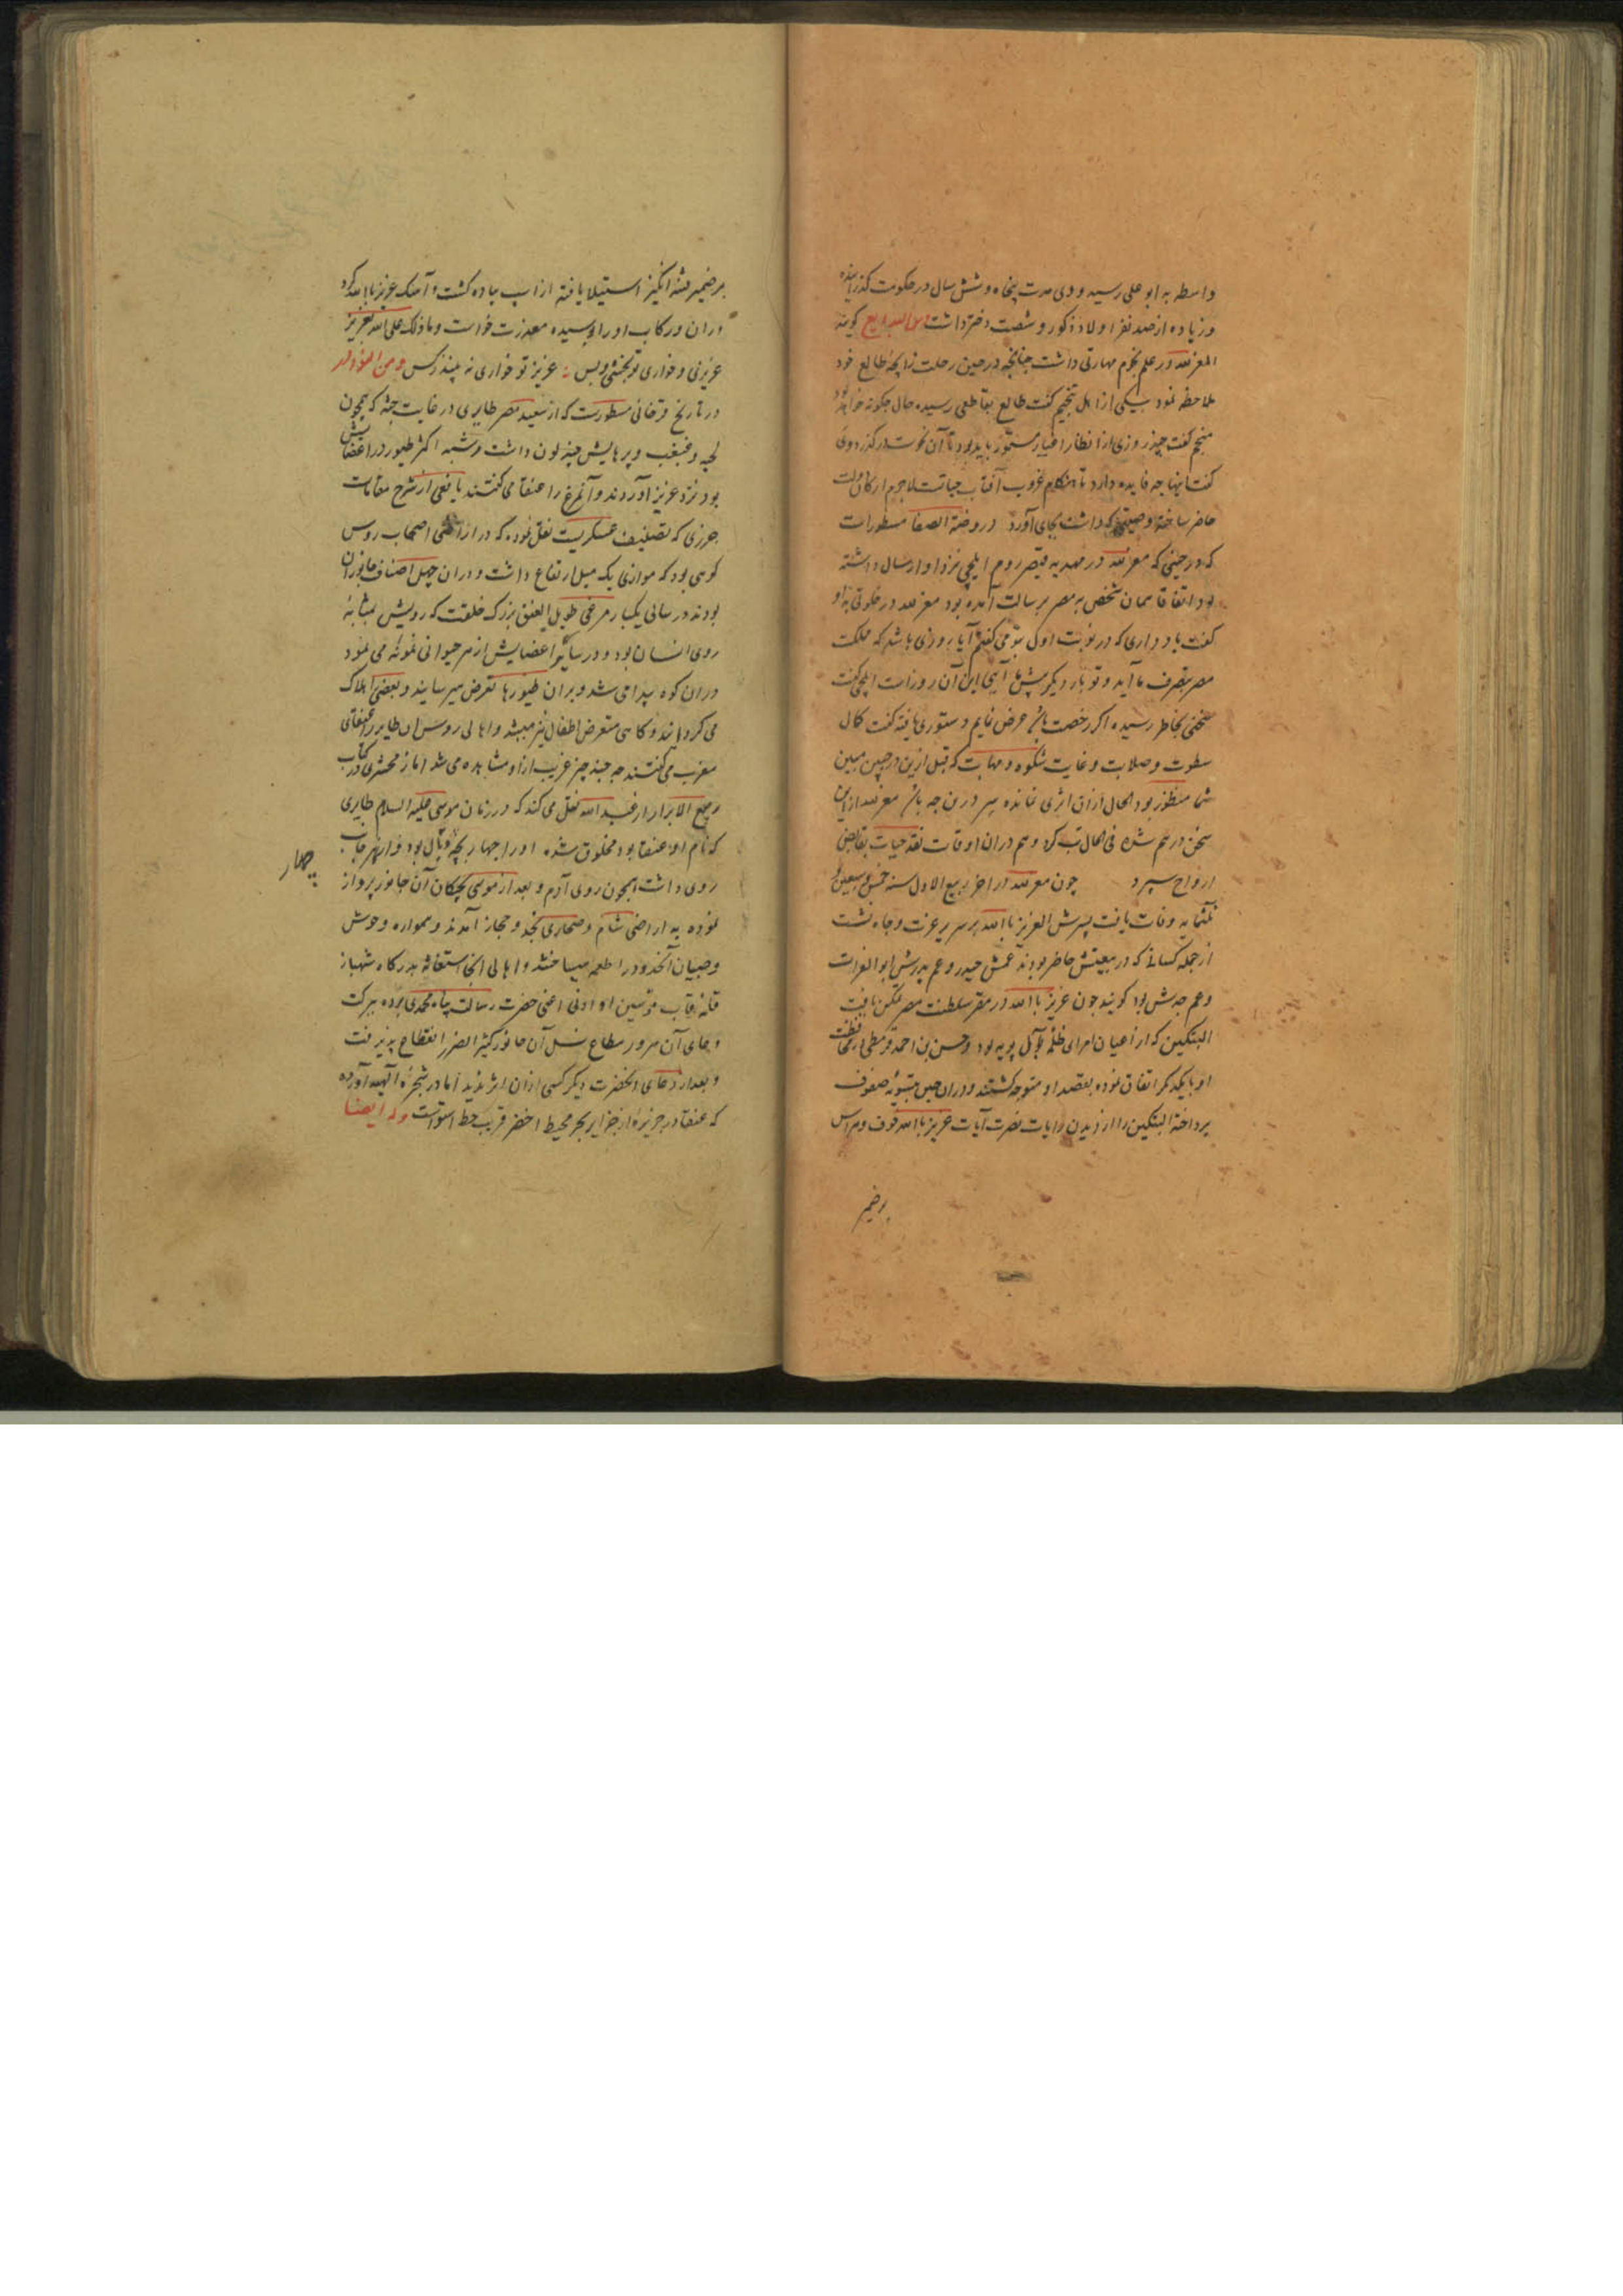 واسطه به ابو علی رسید و وی مدت پنجاه و شش سال در حکومت گذرانیده
و زیاده از صد نفر اولاد ذکور و شصت دختر داشت گویند
المعز لله در علم نجوم مهارتی داشت چنانچه در حین رحلت زایچه طالع خود
ملاحظه نمود بیکی از اهل تنجیم گفت طالع بقاطعی رسیده حال چگونه خواهد بود
منجم گفت چند روزی از انظار اغیار مستور باید بود تا آن نحوست درگذرد وی
گفت اینها چه فایده دارد تا هنگام غروب آفتاب حیاتست لاجرم ارکان دولت
حاضر ساخته وصیتی که داشت بجای آورد در روضة الصفا مسطورات
که در حینی که معز لله در مهدیه قیصر روم ایلچی نزد او ارسال داشته
بود اتفاقا همان شخص به مصر برسالت آمده بود معز لله در خلوتی به او
گفت یاد داری که در نوبت اول بتو می گفتم آیا روزی باشد که مملکت
مصر بتصرف ما آید و تو بار دیگر پیش ما آیی این آن روزاست ایلچی گفت
سخنی بخاطر رسیده اگر رخصت باشد عرض نمایم دستوری یافته گفت کمال
سطوت و صلابت و غایت شکوه و مهابت که قبل ازین در جبین مبین
شما منظور بود الحال ازان اثری نمانده سر درین چه باشد معز لله از این
سخن درهم شده فی الحال تب کرد و هم دران اوقات نقد حیات بقابض
ارواح سپرد چون معز لله در اواخر ربیع الاول سنه خمس و سبعین و
ثلثمایه وفات یافت پسرش العزیز بالله بر سریر عزت و جاه نشست
از جمله کسانی که در بیعتش حاضر بودند عمش حیدر و عم پدرش ابو الفرات
و عم جدش بود گویند چون عزیز بالله در مقر سلطنت مصر تمکن یافت
البتکین که از اعیان امرای ظلمه آل بویه بود و حسن بن احمد قرمطی
او با یکدیگر اتفاق نموده بقصد او متوجه گشتند و دران حین بتسویه صفوف
پرداخته البتکین را از دیدن رایات نصرت آیات عزیز بالله خوف و هراس
بر ضمیر
بر ضمیر فتنه انگیز استیلا یافته از اسپ پیاده گشت و آهنگ عزیز بالله کرد
دران رکاب او را بوسیده معذرت خواست و ما ذلک علی الله بعزیز
عزیزی و خواری تو بخشی و بس عزیز تو خواری نه بیند ز کس
در تاریخ فرغانی مسطورست که از سعید مصر طایری در غایت جثه که همچون
لحیه و غبغب و پرهایش چند لون داشت و شبه اکثر طیور در اعضایش
بود نزد عزیز آوردند و آن مرغ را عنقا می گفتند یافعی از شرح مقامات
حریری که تصنیف عسکریست نقل نموده که در اراضی اصحاب روس
کوهی بود که موازی یک میل ارتفاع داشت و دران چهل اصناف جانوران
بودند در سالی یکبار مرغی طویل العنق بزرگ خلقت که رویش بمثابه
روی انسان بود و در سایر اعضایش از هر حیوانی نمونه می نمود
دران کوه پیدا می شد و بران طیورها تعرض میرسانید و بعضی را هلاک
می گردانید و گاهی متعرض اطفال نیز میشد و اهالی روس ان طایر را عنقای
مغرب می گفتند چه چند چیز غریب از او مشاهده می شد اما زمخشری در کتاب
ربیع الابرار از عبد الله نقل می کند که در زمان موسی علیه السلام طایری
که نام او عنقا بود مخلوق شده او را چهار بچه و بال بود و از هر جانب
روی داشت همچون روی آدم و بعد از موسی بچگان آن جانور پرواز
نموده به اراضی شام و صحاری نجد و حجاز آمدند و همواره وحوش
و صبیان آنحدود را طعمه میساختند و اهالی آنجا استغاثه بدرگاه شهباز
قله قاب قوسین او ادنی اعنی حضرت رسالت پناه محمدی برده ببرکت
دعای آن سرور مطاع نسل آن جانور کثیر الضرر انقطاع پذیرفت
و بعد از دعای آنحضرت دیگر کسی ازان اثر ندید اما در شجره الهیه آورده
که عنقا در جزیره از جزایر بحر محیط اخضر قریب خط استواست و له ایضا
چهار